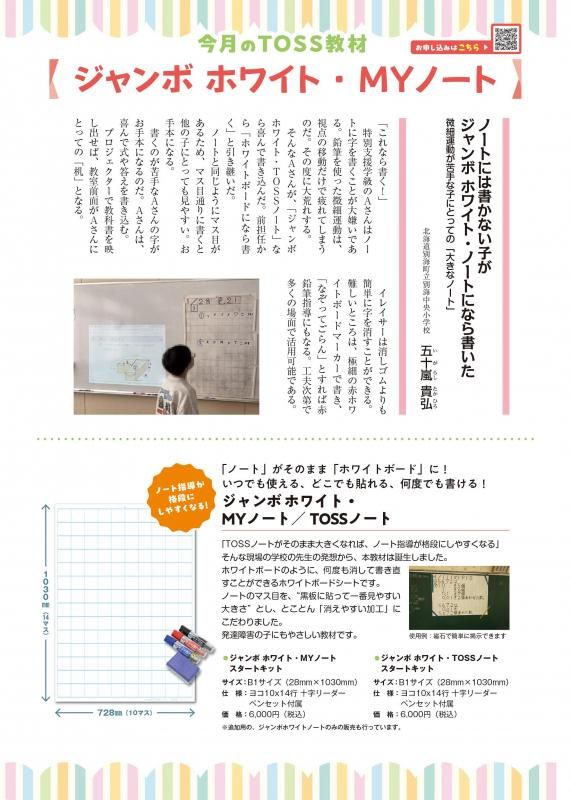 今月のTOSS教材
お申し込みはこちら
【 ジャンボ ホワイト・MYノート 】
ノートには書かない子が
ジャンボ ホワイト・ノートになら書いた
微細運動が苦手な子にとっての「大きなノート」
北海道別海町立別海中央小学校
五十嵐 貴弘
いがらし たかひろ
「これなら書く！」
特別支援学級のAさんはノー
トに字を書くことが大嫌いであ
る。鉛筆を使った微細運動は、
視点の移動だけで疲れてしまう
のだ。その度に大荒れする。
そんなAさんが、「ジャンボ
ホワイト・TOSSノート」な
ら喜んで書き込んだ。前担任か
ら「ホワイトボードになら書
く」と引き継いだ。
ノートと同じようにマス目が
あるため、マス目通りに書くと
他の子にとっても見やすい。お
手本になる。
書くのが苦手なAさんの字が
お手本になるのだ。Aさんは、
喜んで式や答えを書き込む。
プロジェクターで教科書を映
し出せば、教室前面がAさんに
とっての「机」となる。
イレイサーは消しゴムよりも
簡単に字を消すことができる。
難しいところは、極細の赤ホワ
イトボードマーカーで書き、
「なぞってごらん」とすれば赤
鉛筆指導にもなる。工夫次第で
多くの場面で活用可能である。
ノート指導が
格段に
しやすくなる!
「ノート」がそのまま「ホワイトボード」に！
いつでも使える、どこでも貼れる、何度でも書ける！
ジャンボ ホワイト・
MYノート／TOSSノート
「TOSSノートがそのまま大きくなれば、ノート指導が格段にしやすくなる」
そんな現場の学校の先生の発想から、本教材は誕生しました。
ホワイトボードのように、何度も消して書き直
すことができるホワイトボードシートです。
ノートのマス目を、"黒板に貼って一番見やすい
大きさ"とし、とことん「消えやすい加工」に
こだわりました。
発達障害の子にもやさしい教材です。
使用例：磁石で簡単に掲示できます
1030mm（14マス）
728mm（10マス）
●ジャンボ ホワイト・MYノート
スタートキット
サイズ：B1サイズ（28mm×1030mm）
仕　様：ヨコ10x14行 十字リーダー
ペンセット付属
価　格：6,000円（税込）
●ジャンボ ホワイト・TOSSノート
スタートキット
サイズ：B1サイズ（28mm×1030mm）
仕　様：ヨコ10x14行 十字リーダー
ペンセット付属
価　格：6,000円（税込）
※追加用の、ジャンボホワイトノートのみの販売も行っています。